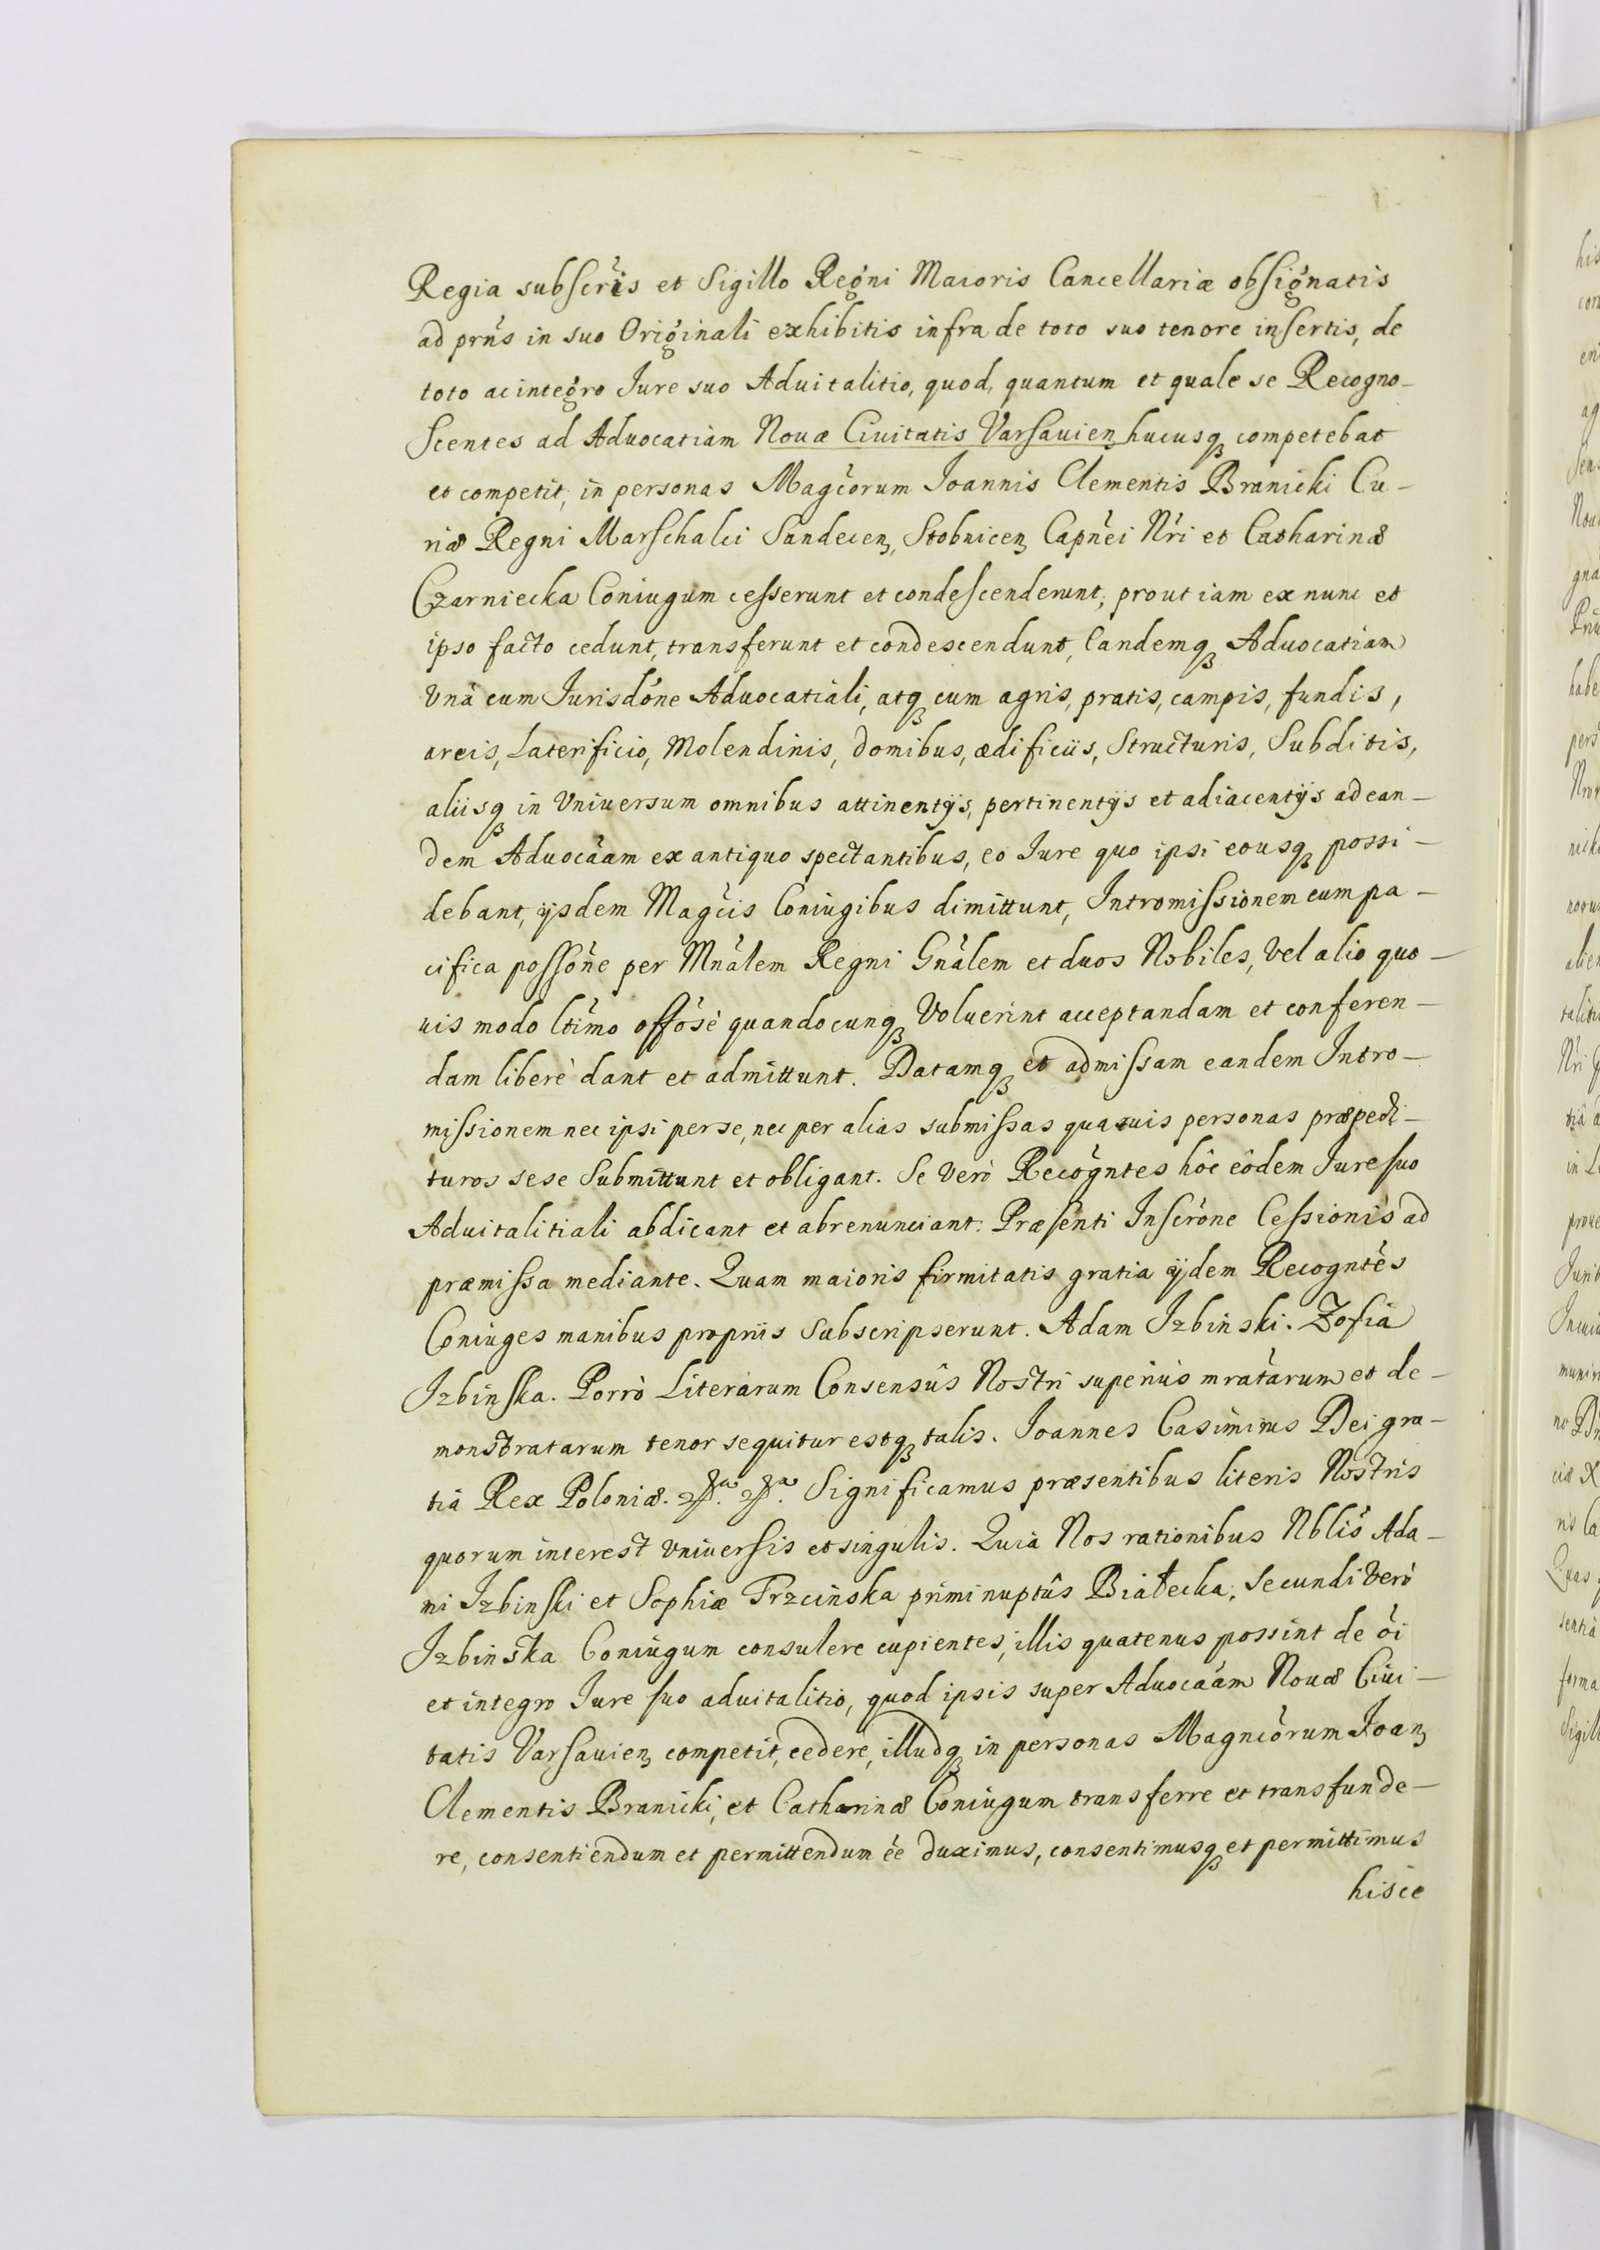 Regia subscris et Sigillo Regni Maioris Cancellariæ obsignatis
ad prns in suo Originali exhibitis infra de toto suo tenore insertis, de
toto ac integro Iure suo Aduitalitio, quod, quantum et quale se Recogno-
scentes ad Aduocatiam Nouæ Ciuitatis Varsauien hucusq competebat
et competit, in personas Magcorum Ioannis Clementis Branicki Cu-
riæ Regni Marschalci Sandecen, Stobnicen Capnei Nri et Catharinæ
Czarniecka Coniugum cesserunt et condescenderunt, prout iam ex nunc et
ipso facto cedunt, transferunt et condescendunt, Eandemq Aduocatiam
Vnà cum Iurisdone Aduocatiali, atq cum agris, pratis, campis, fundis,
areis, Laterificio, Molendinis, domibus, ædificiis, Structuris, Subditis,
aliisq in Vniuersum omnibus attinentijs, pertinentijs et adiacentijs ad ean-
dem Aduocaam ex antiquo spectantibus, eo Iure quo ipsi eousq possi-
debant, ijsdem Magcis Coniugibus dimittunt, Intromissionem cum pa-
cifica possone per Mnalem Regni Gnalem et duos Nobiles, Vel alio quo-
uis modo ltimo offosè quandocunq Voluerint acceptandam et conferen-
dam liberè dant et admittunt. Datamq et admissam eandem Intro-
missionem nec ipsi per se, nec per alias submissas quasuis personas præpedi-
turos sese Submittunt et obligant. Se Verò Recogntes hôc eôdem Iure suo
Aduitalitiali abdicant et abrenunciant. Præsenti Inscrone Cessionis ad
præmissa mediante. Quam maioris firmitatis gratia ijdem Recogntes
Coniuges manibus proprijs Subscripserunt. Adam Izbinski. Zofia
Izbinska. Porrò Literarum Consensûs Nostri superiùs mratarum et de-
monstratarum tenor sequitur estq talis. Ioannes Casimirus Dei gra-
tia Rex Poloniæ. Significamus præsentibus literis Nostris
quorum interest vniuersis et singulis. Quia Nos rationibus Nblis Ada-
mi Izbinski et Sophiæ Trzcinska primi nuptûs Białecka, Secundi Verò
Izbinska Coniugum consulere cupientes, illis quatenus possint de oi
et integro Iure suo aduitalitio, quod ipsis super Aduocaam Nouæ Ciui-
tatis Varsauien competit, cedere, illudq in personas Magncorum Ioan
Clementis Branicki, et Catharinæ Coniugum transferre et transfunde-
re, consentiendum et permittendum ee duximus, consentimusq et permittimus
hisce